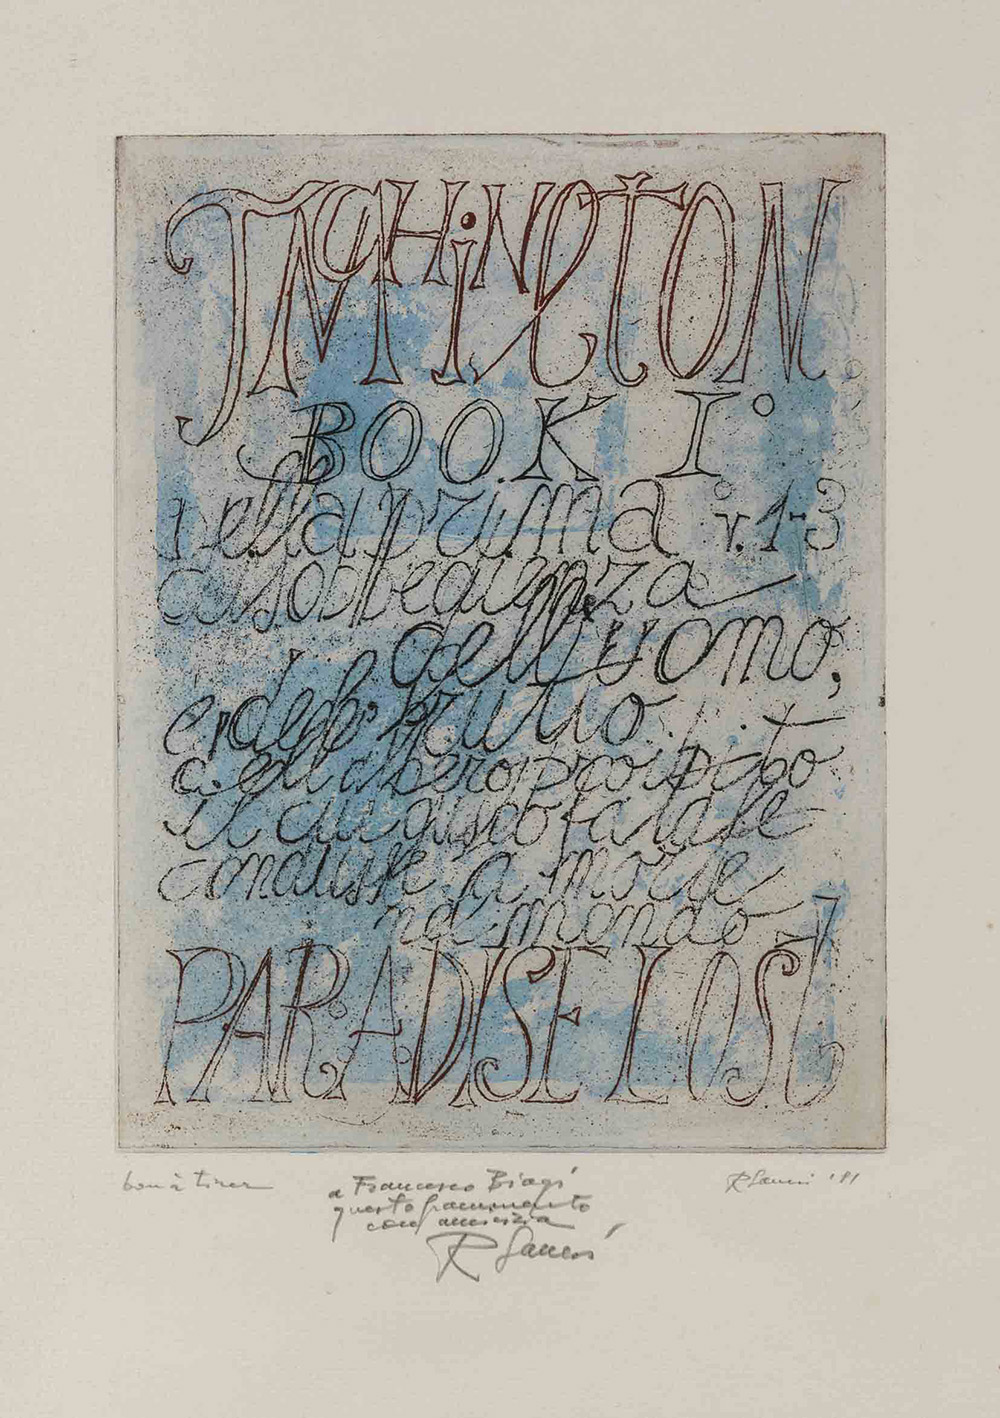 JOHN MILTON
BOOK I°
della prima v. 1-3
disobbedienza
dell'uomo,
e del frutto
dell'albero proibito
il cui gusto fatale
condusse a morte
nel mondo
PARADISE LOST
bon à tirer
R Sanesi
a Francesco Biagi
questo frammento
con amicizia
R Sanesi